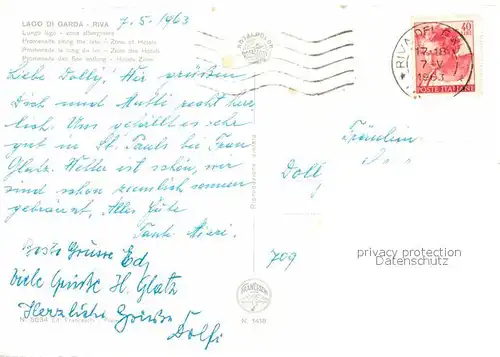 LAGO DI GARDA - RIVA
Lungo lago - zona alberghiera
Promenade along the lake - Zone of Hotels
Promenade le long du lac - Zone des Hotels
Promenade des See entlang - Hotels Zone
7.5.1963
Liebe Dolly! Wir grüßen
Dich und Mutti recht herz
lich. Uns gefällt es sehr
gut in St. Pauls bei Frau
Glatz. Wetter ist schön, wir
sind schon ziemlich sonnen
gebräunt, Alles Gute
Tante Mizzi.
Beste Grüsse Edi
Viele Grüße H. Glatz
Herzliche Grüße
Dolfi
RIVA DEL GARDA
17-18
7-V
1963
40
LIRE
POSTE ITALIANE
Fräulein
Dolly
709
privacy protection
Datenschutz
N° 5094
N. 1418